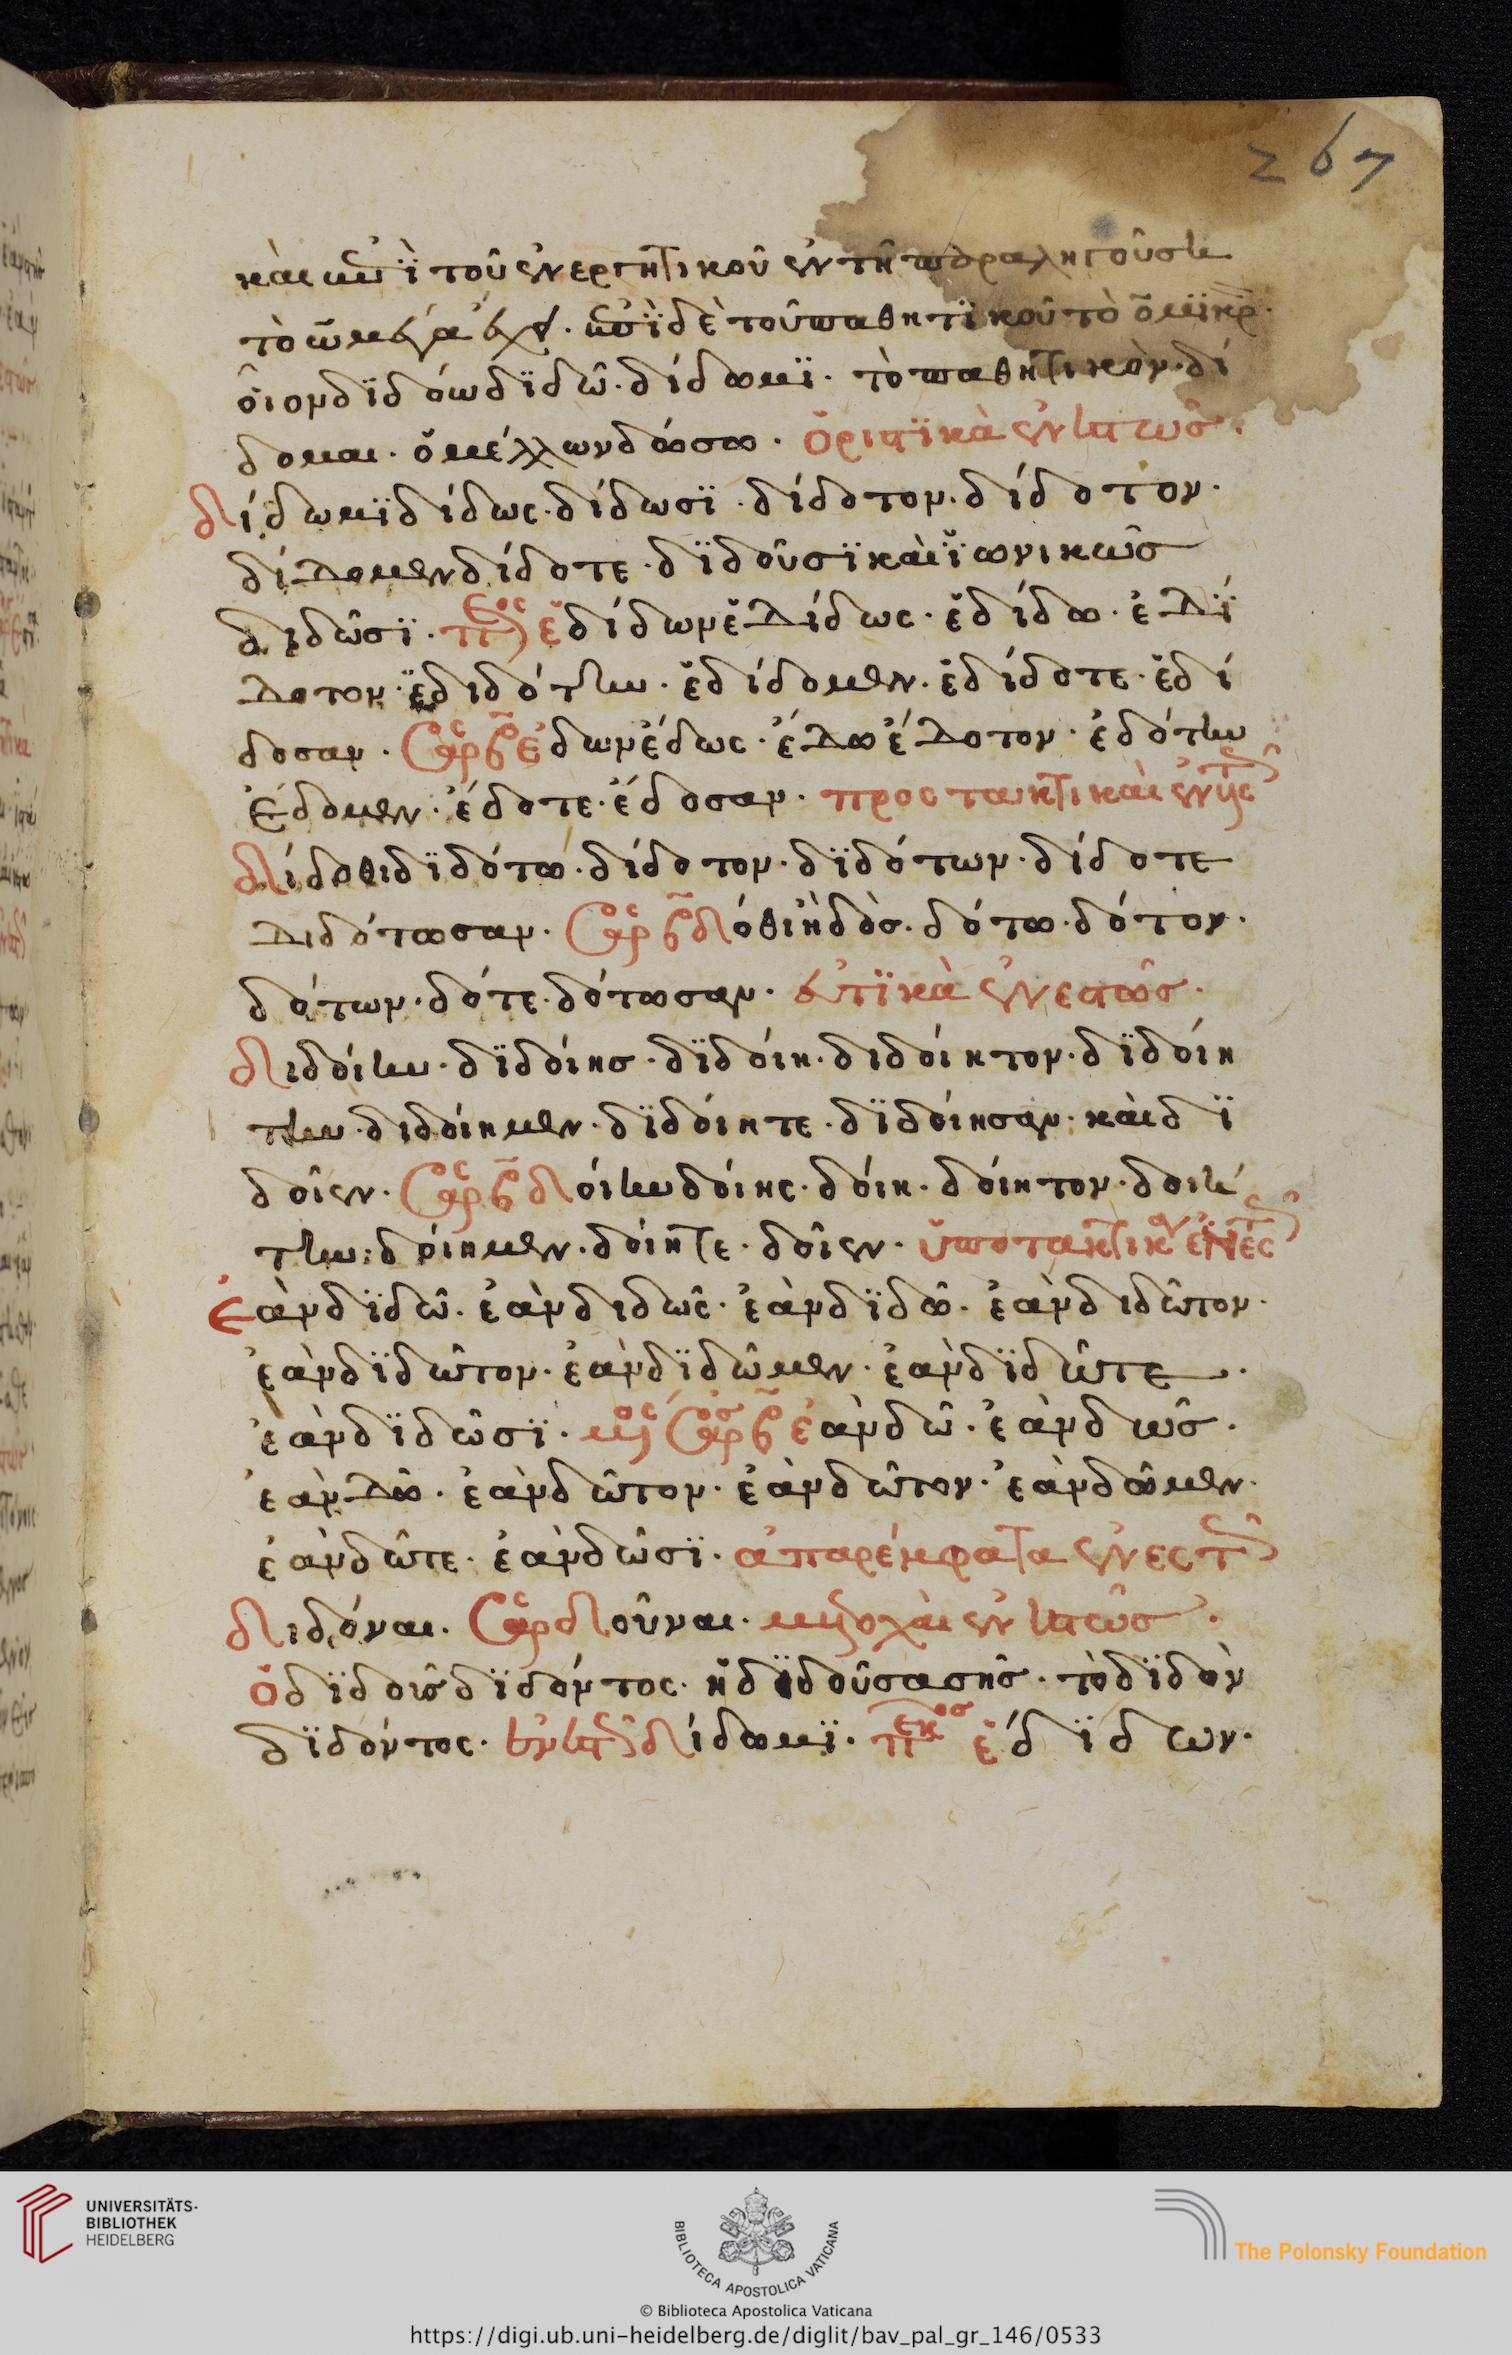 267
καὶ ἐπὶ τοῦ ἐνεργητικοῦ ἐν τῇ παραληγούσῃ
τὸ ὦ μέγα ἔχει. ἐπῒ δὲ τοῦ παθητϊκοῦ τὸ ὂ μϊκρ
οἷον δϊδόω δϊδῶ. δίδωμϊ. τὸ παθητικὸν. δί
δομαι. ὁ μέλλων δώσω. ὁριστϊκὰ ἐνεστως.
Δίδωμϊ δίδως. δίδωσϊ. δίδοτον. δίδοτον.
δίδομεν δίδοτε. δϊδοῦσϊ καὶ ϊωνικῶσ
διδῶσϊ. ἐδίδων ἐδίδως. ἐδίδω. ἐδϊ
δοτον. ἐδιδότην. ἐδίδομεν. ἐδίδοτε. ἐδί
δοσαν. ἔδων ἔδως. ἔδω ἔδοτον. ἐδότην
ἔδομεν. ἔδοτε. ἔδοσαν. προστακτικὰ
Δίδοθι δϊδότω. δίδοτον. δϊδότων. δίδοτε
διδότωσαν. δόθι ἢ δὸσ. δότω. δότον.
δότων. δότε. δότωσαν. εὐκτϊκὰ ἐνεστῶσ.
Διδοίην. δϊδοίησ. δϊδοίη. διδοίητον. δϊδοιή
την. διδοίημεν. δϊδοίητε. δϊδοίησαν. καὶ δϊ
δοῖεν. δοίην δοίης. δοίη. δοίητον. δοιή
την: δοίημεν. δοίητε. δοῖεν. ὑποτακτικ
Ἐὰν δϊδῶ. ἐὰν διδῶς. ἐὰν δϊδῶ. ἐὰν διδῶτον.
ἐὰν δϊδῶτον. ἐὰν δϊδῶμεν. ἐὰν δϊδῶτε.
ἐὰν δϊδῶσϊ. ἐὰν δῶ. ἐὰν δῶσ.
ἐὰν δῶ. ἐὰν δῶτον. ἐὰν δῶτον. ἐὰν δῶμεν.
ἐὰν δῶτε. ἐὰν δῶσϊ. ἀπαρέμφατα ἐνεστ
Διδόναι. δοῦναι. μετοχαὶ ἐνεστῶσ.
ὁ δϊδοὺσ δϊδόντος. ἡ δϊδοῦσα σησ. τὸ δϊδὸν
δϊδόντος. ἐνεστ δίδωμϊ. ἐδϊδων.
UNIVERSITÄTS-
BIBLIOTHEK
HEIDELBERG
BIBLIOTECA APOSTOLICA VATICANA
The Polonsky Foundation
© Biblioteca Apostolica Vaticana
https://digi.ub.uni-heidelberg.de/diglit/bav_pal_gr_146/0533